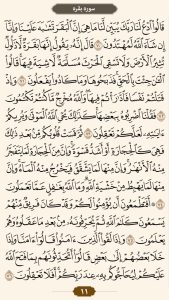 سوره بقره
قَالُوا۟ ٱدْعُ لَنَا رَبَّكَ يُبَيِّن لَّنَا مَا هِىَ إِنَّ ٱلْبَقَرَ تَشَٰبَهَ عَلَيْنَا وَإِنَّآ
إِن شَآءَ ٱللَّهُ لَمُهْتَدُونَ ٧٠ قَالَ إِنَّهُۥ يَقُولُ إِنَّهَا بَقَرَةٌ لَّا ذَلُولٌ
تُثِيرُ ٱلْأَرْضَ وَلَا تَسْقِى ٱلْحَرْثَ مُسَلَّمَةٌ لَّا شِيَةَ فِيهَا قَالُوا۟
ٱلْـَٰٔنَ جِئْتَ بِٱلْحَقِّ فَذَبَحُوهَا وَمَا كَادُوا۟ يَفْعَلُونَ ٧١ وَإِذْ
قَتَلْتُمْ نَفْسًا فَٱدَّٰرَْٰٔتُمْ فِيهَا وَٱللَّهُ مُخْرِجٌ مَّا كُنتُمْ تَكْتُمُونَ
٧٢ فَقُلْنَا ٱضْرِبُوهُ بِبَعْضِهَا كَذَٰلِكَ يُحْىِ ٱللَّهُ ٱلْمَوْتَىٰ وَيُرِيكُمْ
ءَايَٰتِهِۦ لَعَلَّكُمْ تَعْقِلُونَ ٧٣ ثُمَّ قَسَتْ قُلُوبُكُم مِّنۢ بَعْدِ ذَٰلِكَ
فَهِىَ كَٱلْحِجَارَةِ أَوْ أَشَدُّ قَسْوَةً وَإِنَّ مِنَ ٱلْحِجَارَةِ لَمَا يَتَفَجَّرُ
مِنْهُ ٱلْأَنْهَٰرُ وَإِنَّ مِنْهَا لَمَا يَشَّقَّقُ فَيَخْرُجُ مِنْهُ ٱلْمَآءُ وَإِنَّ
مِنْهَا لَمَا يَهْبِطُ مِنْ خَشْيَةِ ٱللَّهِ وَمَا ٱللَّهُ بِغَٰفِلٍ عَمَّا تَعْمَلُونَ
٧٤ أَفَتَطْمَعُونَ أَن يُؤْمِنُوا۟ لَكُمْ وَقَدْ كَانَ فَرِيقٌ مِّنْهُمْ
يَسْمَعُونَ كَلَٰمَ ٱللَّهِ ثُمَّ يُحَرِّفُونَهُۥ مِنۢ بَعْدِ مَا عَقَلُوهُ وَهُمْ
يَعْلَمُونَ ٧٥ وَإِذَا لَقُوا۟ ٱلَّذِينَ ءَامَنُوا۟ قَالُوٓا۟ ءَامَنَّا وَإِذَا
خَلَا بَعْضُهُمْ إِلَىٰ بَعْضٍ قَالُوٓا۟ أَتُحَدِّثُونَهُم بِمَا فَتَحَ ٱللَّهُ
عَلَيْكُمْ لِيُحَآجُّوكُم بِهِۦ عِندَ رَبِّكُمْ أَفَلَا تَعْقِلُونَ ٧٦
١١